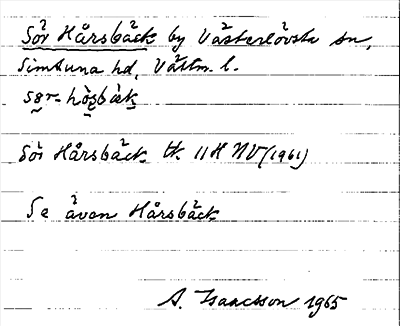 Sör Hårsbäck by Västerlövsta sn,
Simtuna hd, Västm. l.
Sör Hårsbäck tk. 11H NV (1961)
Se även Hårsbäck
A. Isaacsson 1965